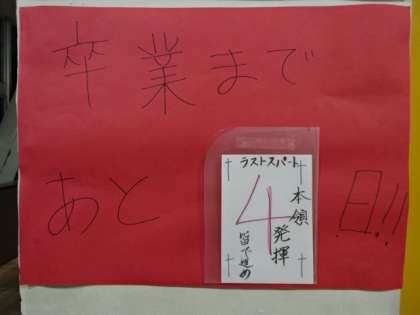 卒業まで
あと
ラストスパート
4
本領
発揮
皆で進め
日!!